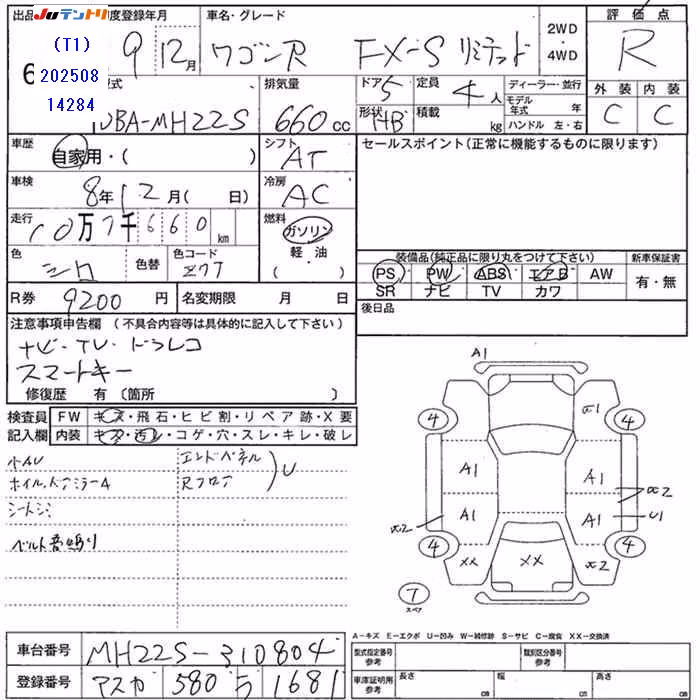 Juテントリ
出品
年度登録年月
車名・グレード
評価点
(T1)
202508
14284
9 12月
ワゴンR FX-S リミテッド
2WD
・
4WD
R
型式
排気量
ドア
定員
ディーラー・並行
外装
内装
DBA-MH22S
660cc
5
4人
モデル年式 年
形状 HB
積載 kg
ハンドル 左・右
C
C
車歴
自家用・( )
シフト
AT
セールスポイント(正常に機能するものに限ります)
車検
8年12月( 日)
冷房
AC
走行
10万7千660km
燃料
ガソリン
軽・油
( )
色
シロ
色替
色コード
Z7T
装備品(純正品に限り丸をつけて下さい)
新車保証書
PS PW ABS エアB AW
SR ナビ TV カワ
有・無
R券
9200円
名変期限 月 日
後日品
注意事項申告欄(不具合内容等は具体的に記入して下さい)
ナビ・TV・ドラレコ
スマートキー
修復歴 有(箇所 )
検査員
記入欄
FW キズ・飛石・ヒビ割・リペア跡・X要
内装 キズ・汚レ・コゲ・穴・スレ・キレ・破レ
小AU
エンドパネル
U
ホイル、ドアミラーA
Rフロア
シートシミ
ベルト音鳴り
A1
4
4
A1
A1
A1
A1
U1
4
4
XX
XX
7
スペア
A-キズ E-エクボ U-凹み W-補修跡 S-サビ C-腐食 XX-交換済
車台番号
MH22S-310804
型式指定番号
参考
類別区分番号
参考
登録番号
アスカ 580 ら 1681
車庫証明用
参考
長さ cm
幅 cm
高さ cm